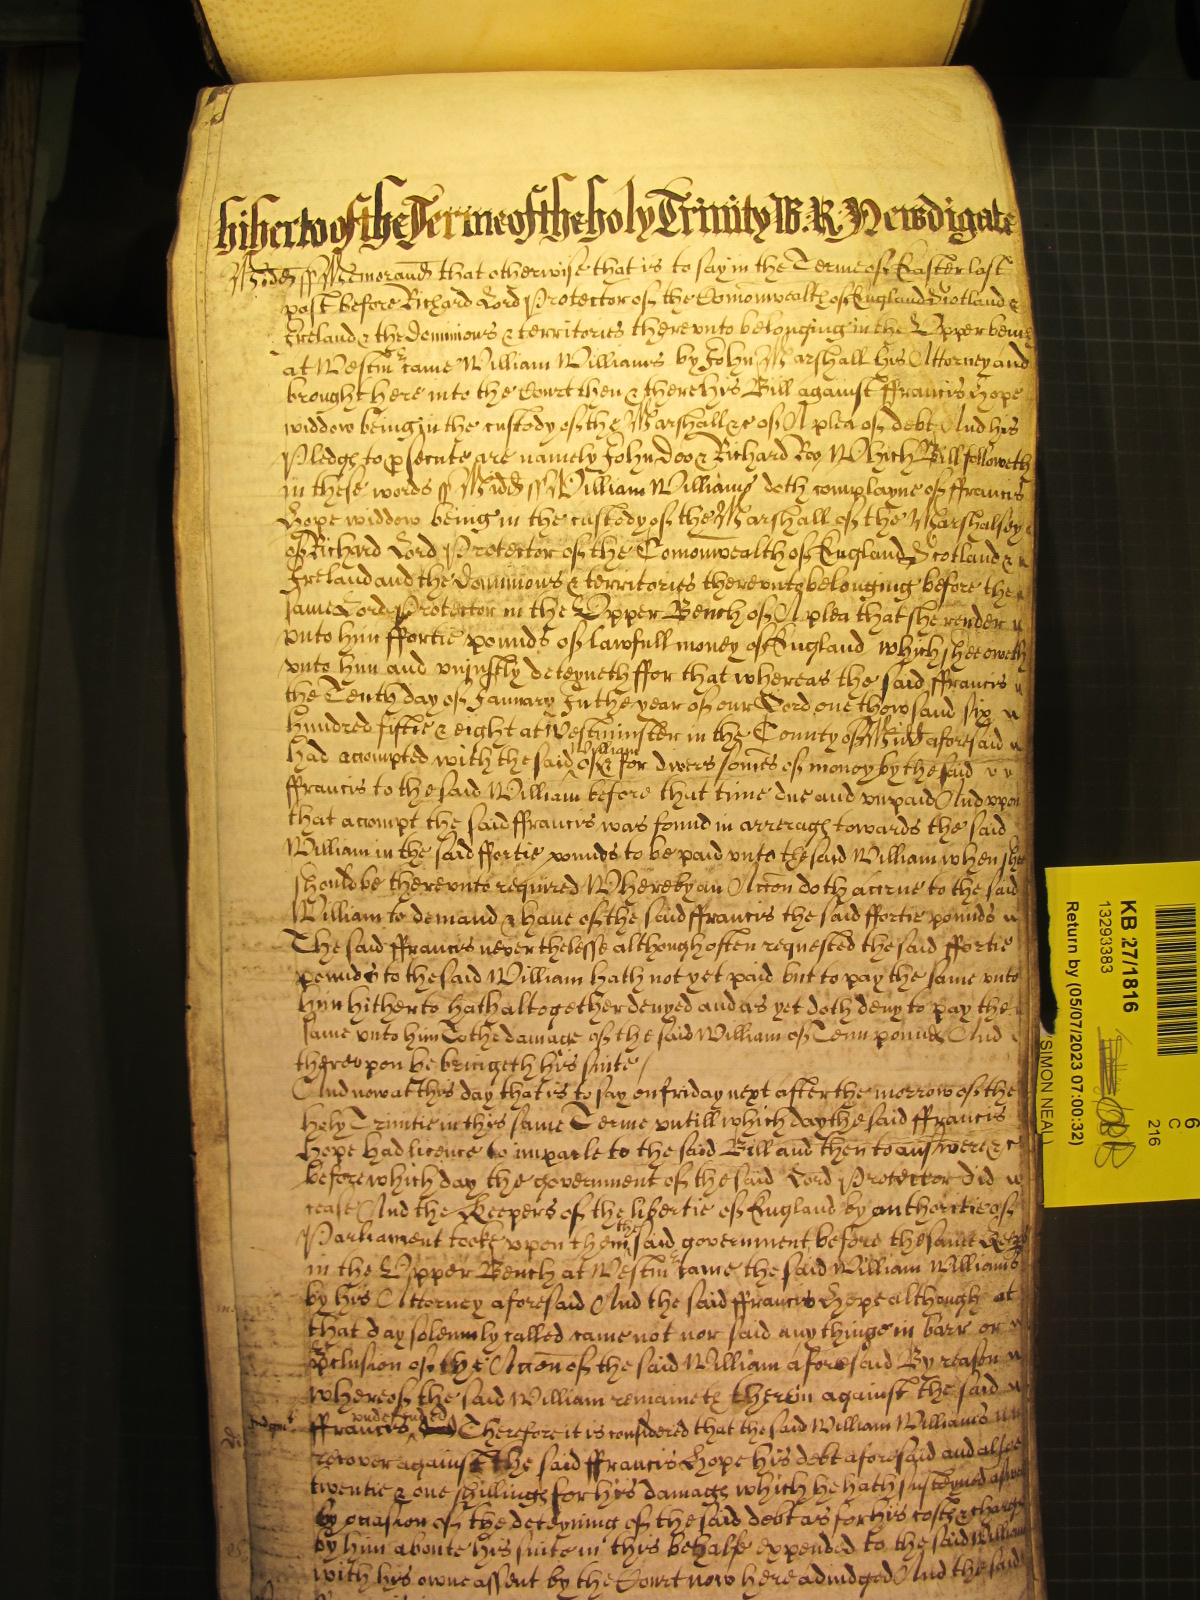 hitherto of the Terme of the holy Trinity W. R. Newdigate
Midd ss Memorand that otherwise that is to say in the Terme of Easter last
past before Richard Lord Protector of the Comonwealth of England Scotland &
Ireland & the dominions & territories thereunto belonging in the Upper bench
at Westmr came William Williams by John Marshall his Attorney and
brought here into the Court then & there his Bill against ffrancis Hope
widdow being in the custody of the Marshall &c of A plea of debt And his
Pledges to psecute are namely John Doo & Richard Roo Which Bill followeth
in these words ss Midd ss William Williams doth complayne of ffrancis
Hope widdow being in the custody of the Marshall of the Marshalsey
of Richard Lord Protector of the Comonwealth of England Scotland &
Ireland and the dominions & territories thereunto belonging before the
same Lord Protector in the Upper Bench of A plea that she render
unto him ffortie pounds of lawfull money of England which shee oweth
unto him and uniustly deteyneth ffor that whereas the said ffrancis
the Tenth day of January In the year of our Lord one thowsand six
hundred fiftie & eight at Westminster in the County of Midd aforesaid
had accompted with the said William of & for divers somes of money by the said
ffrancis to the said William before that time due and unpaid And upon
that accompt the said ffrancis was found in arrerages towards the said
William in the said ffortie pounds to be paid unto the said William when shee
should be thereunto required Whereby an Accon doth accrue to the said
William to demand & have of the said ffrancis the said ffortie pounds
The said ffrancis never thelesse although often requested the said ffortie
pounds to the said William hath not yet paid but to pay the same unto
him hitherto hath altogether denyed and as yet doth deny to pay the
same unto him To the damage of the said William of Tenn pounds And
thereupon he bringeth his suite /
And now at this day that is to say on friday next after the morrow of the
holy Trinitie in this same Terme untill which day the said ffrancis
Hope had licence to imparle to the said Bill and then to answere &c
before which day the government of the said Lord Protector did
cease And the Keepers of the libertie of England by authoritie of
Parliament tooke upon them the said government before the same Keepers
in the Upper Bench at Westmr came the said William Williams
by his Attorney aforesaid And the said ffrancis Hope although at
that day solemnly called came not nor said any thinge in barr or
pclusion of the Accon of the said William aforesaid By reason
whereof the said William remaineth therein against the said
Judgmt
ffrancis undefended Therefore it is considered that the said William Williams
recover against the said ffrancis Hope his debt aforesaid and alsoe
twentie & one shillings for his damages which he hath susteyned aswell
by occasion of the deteyning of the said debt as for his costs & charges
by him aboute his suite in this behalfe expended to the said William
with his owne assent by the Court now here adiudged And the said
KB 27/1816
13293383
Return by (05/07/2023 07:00:32)
(SIMON NEAL)
6
C
216